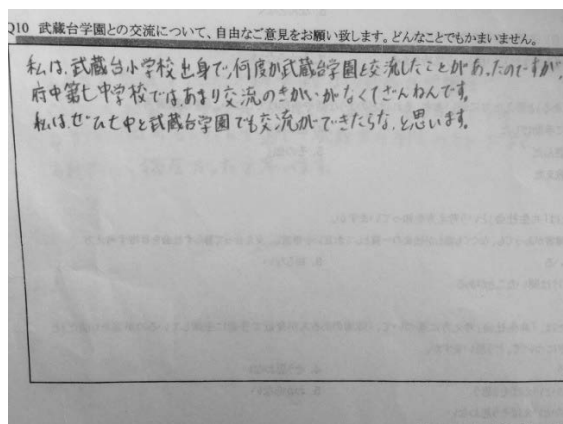 Q10 武蔵台学園との交流について、自由なご意見をお願い致します。どんなことでもかまいません。
私は、武蔵台小学校出身で、何度か武蔵台学園と交流したことがあったのですが、
府中第七中学校では、あまり交流のきかいがなくてざんねんです。
私は、ぜひ七中と武蔵台学園でも交流ができたらな、と思います。